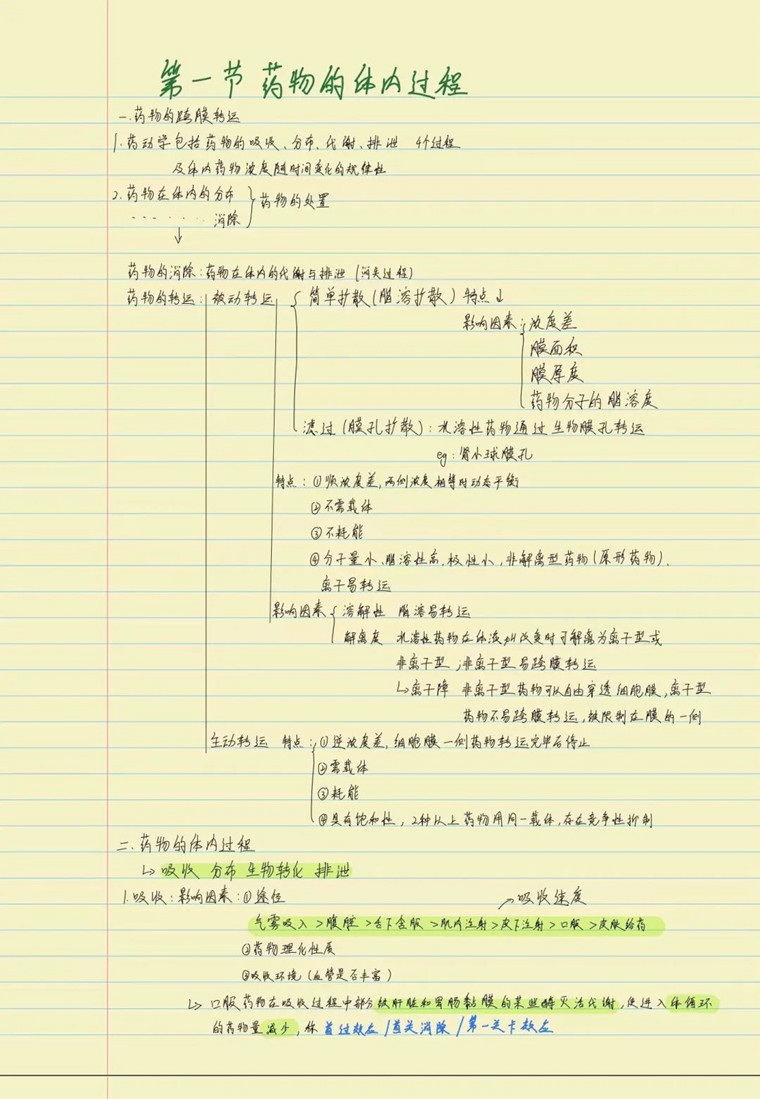 第一节 药物的体内过程
一.药物的跨膜转运
1.药动学包括药物的吸收、分布、代谢、排泄 4个过程
及体内药物浓度随时间变化的规律性
2.药物在体内的分布
药物的处置
消除
↓
药物的消除:药物在体内的代谢与排泄(消失过程)
药物的转运:被动转运 简单扩散(脂溶扩散)特点↓
影响因素:浓度差
膜面积
膜厚度
药物分子的脂溶度
滤过(膜孔扩散):水溶性药物通过生物膜孔转运
eg:肾小球膜孔
特点:①顺浓度差,两侧浓度相等时动态平衡
②不需载体
③不耗能
④分子量小、脂溶性高、极性小,非解离型药物(原形药物).
离子易转运
影响因素 溶解性 脂溶易转运
解离度 水溶性药物在体液PH改变时可解离为离子型或
非离子型,非离子型易跨膜转运
↳离子障 非离子型药物可以自由穿透细胞膜,离子型
药物不易跨膜转运,被限制在膜的一侧
主动转运 特点:①逆浓度差,细胞膜一侧药物转运完毕后停止
②需载体
③耗能
④具有饱和性,2种以上药物用同一载体,存在竞争性抑制
二.药物的体内过程
↳吸收 分布 生物转化 排泄
1.吸收:影响因素:①途径 ↗吸收速度
气雾吸入>腹腔>舌下含服>肌内注射>皮下注射>口服>皮肤给药
②药物理化性质
③吸收环境(血管是否丰富)
↳口服药物在吸收过程中部分被肝脏和胃肠黏膜的某些酶灭活代谢,使进入体循环
的药物量减少,称首过效应/首关消除/第一关卡效应